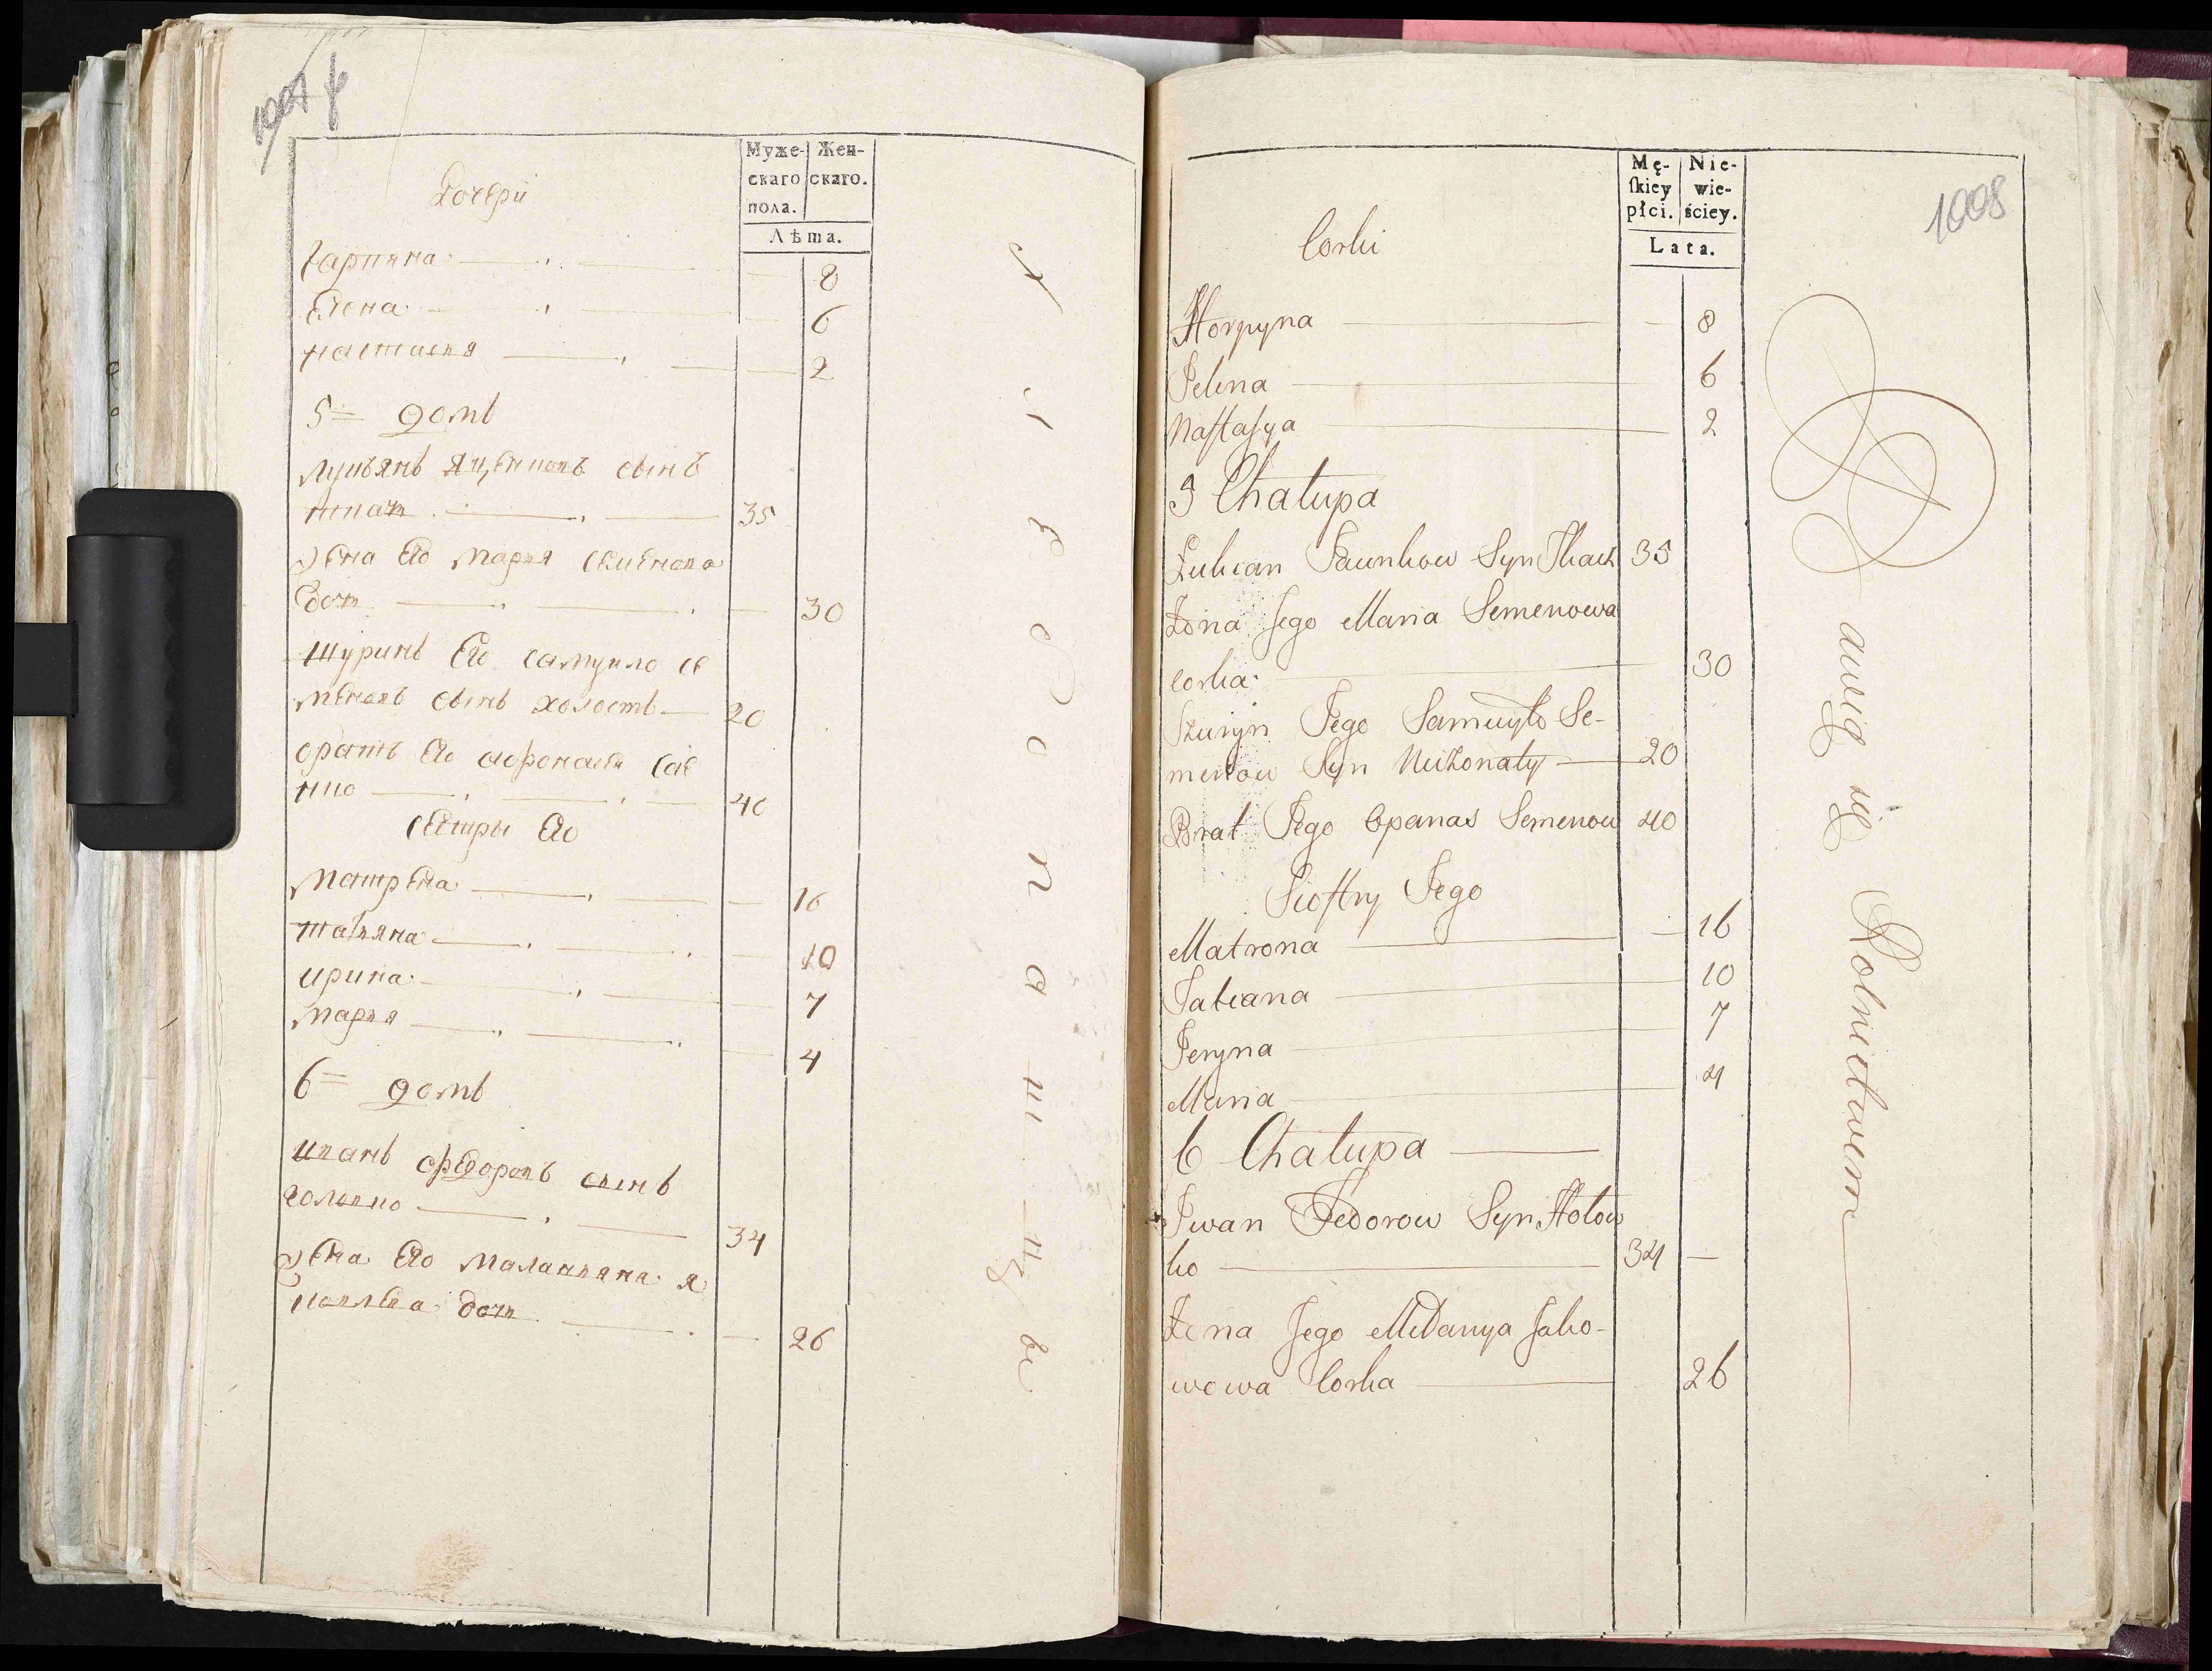 1007
Мужескаго пола. Женскаго.
Лѣта.
Дочери
Гарпина 8
Елена 6
Настасия 2
5 = домъ
Лукьянъ Яценковъ сынъ
ткач 35
жена его Мария Семенова
доч 30
шуринъ Его Самуило Се
меновъ сынъ холостъ 20
братъ Его
40
сестры Его
Матрена 16
Татияна 10
Ирина 7
Мария 4
6 = домъ
Иванъ Федоровъ сынъ
Головко 34
жена Его Маланияна Я
ковлева доч 26
1008
Mę-skiey płci. Nie-wie-ściey.
Lata.
Corki
Horpyna 8
Jelena 6
Nastasya 2
5 Chałupa
Łukian Jacunkow Syn Tkacz 35
Żona Jego Maria Semenowa
corka 30
Szuryn Jego Samuyło Se-
menow Syn Nieżonaty 20
Brat Jego Opanas Semenow 40
Siostry Jego
Matrona 16
Tatiana 10
Jeryna 7
Maria 4
6 Chałupa
Iwan Fedorow Syn Hołow
ko 34
Żona Jego Mełanya Jako-
wowa Corka 26
awią się Rolnictwem